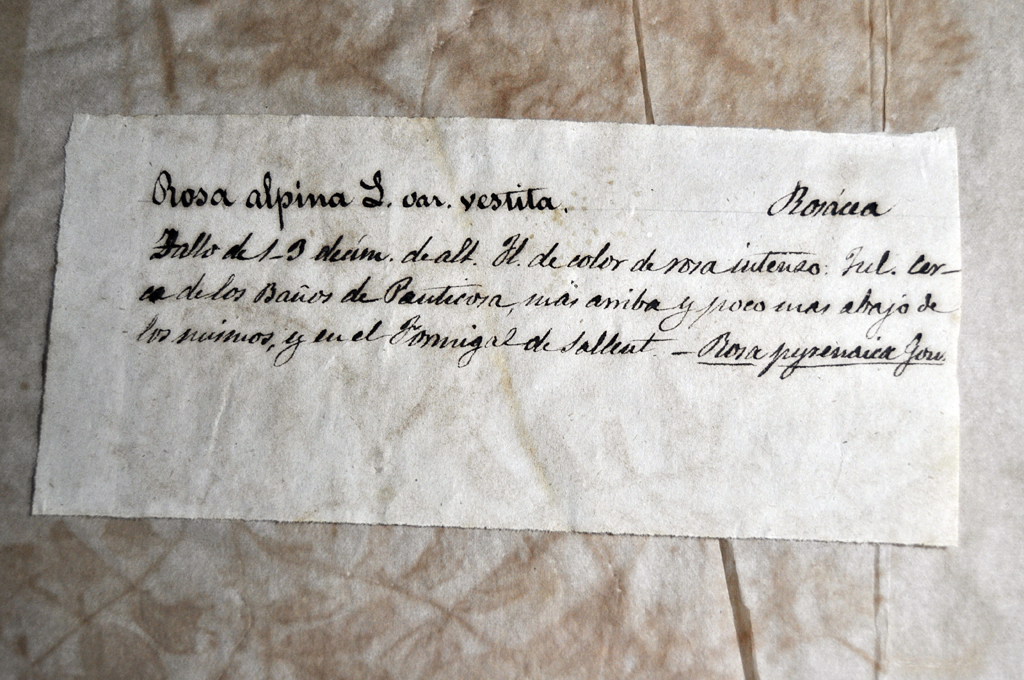 Rosa alpina L. var. vestita. Rosácea
Tallo de 1-3 decím. de alt. Fl. de color de rosa intenso. Jul. Cer-
ca de los Baños de Panticosa, más arriba y poco mas abajo de
los mismos, y en el Formigal de Sallent - Rosa pyrenaica Gou.